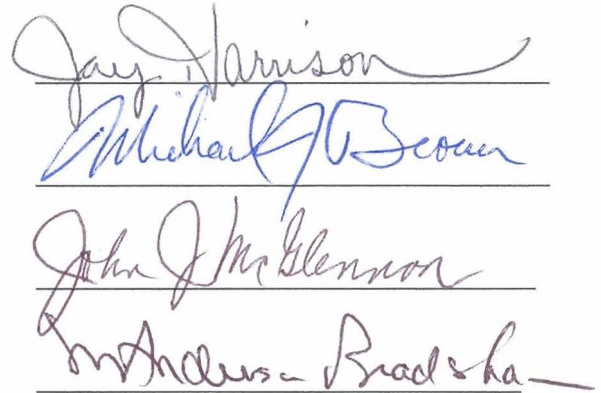 Jay Harrison
Michael J Brown
John J McGlennon
M Anderson Bradshaw